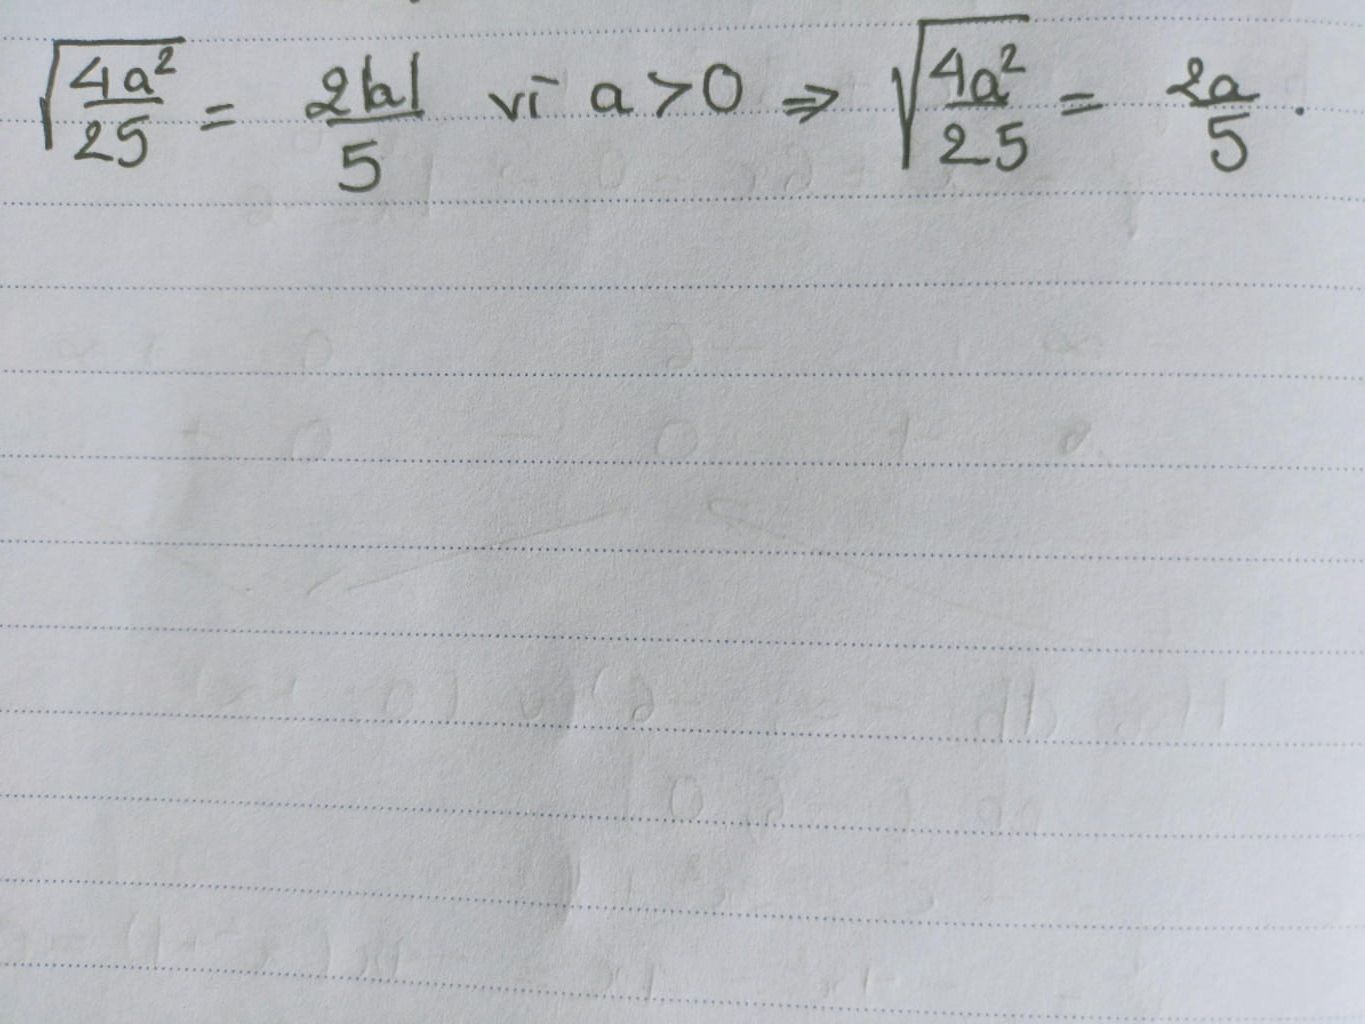 √(4a²/25) = 2|a|/5 vì a > 0 ⇒ √(4a²/25) = 2a/5.